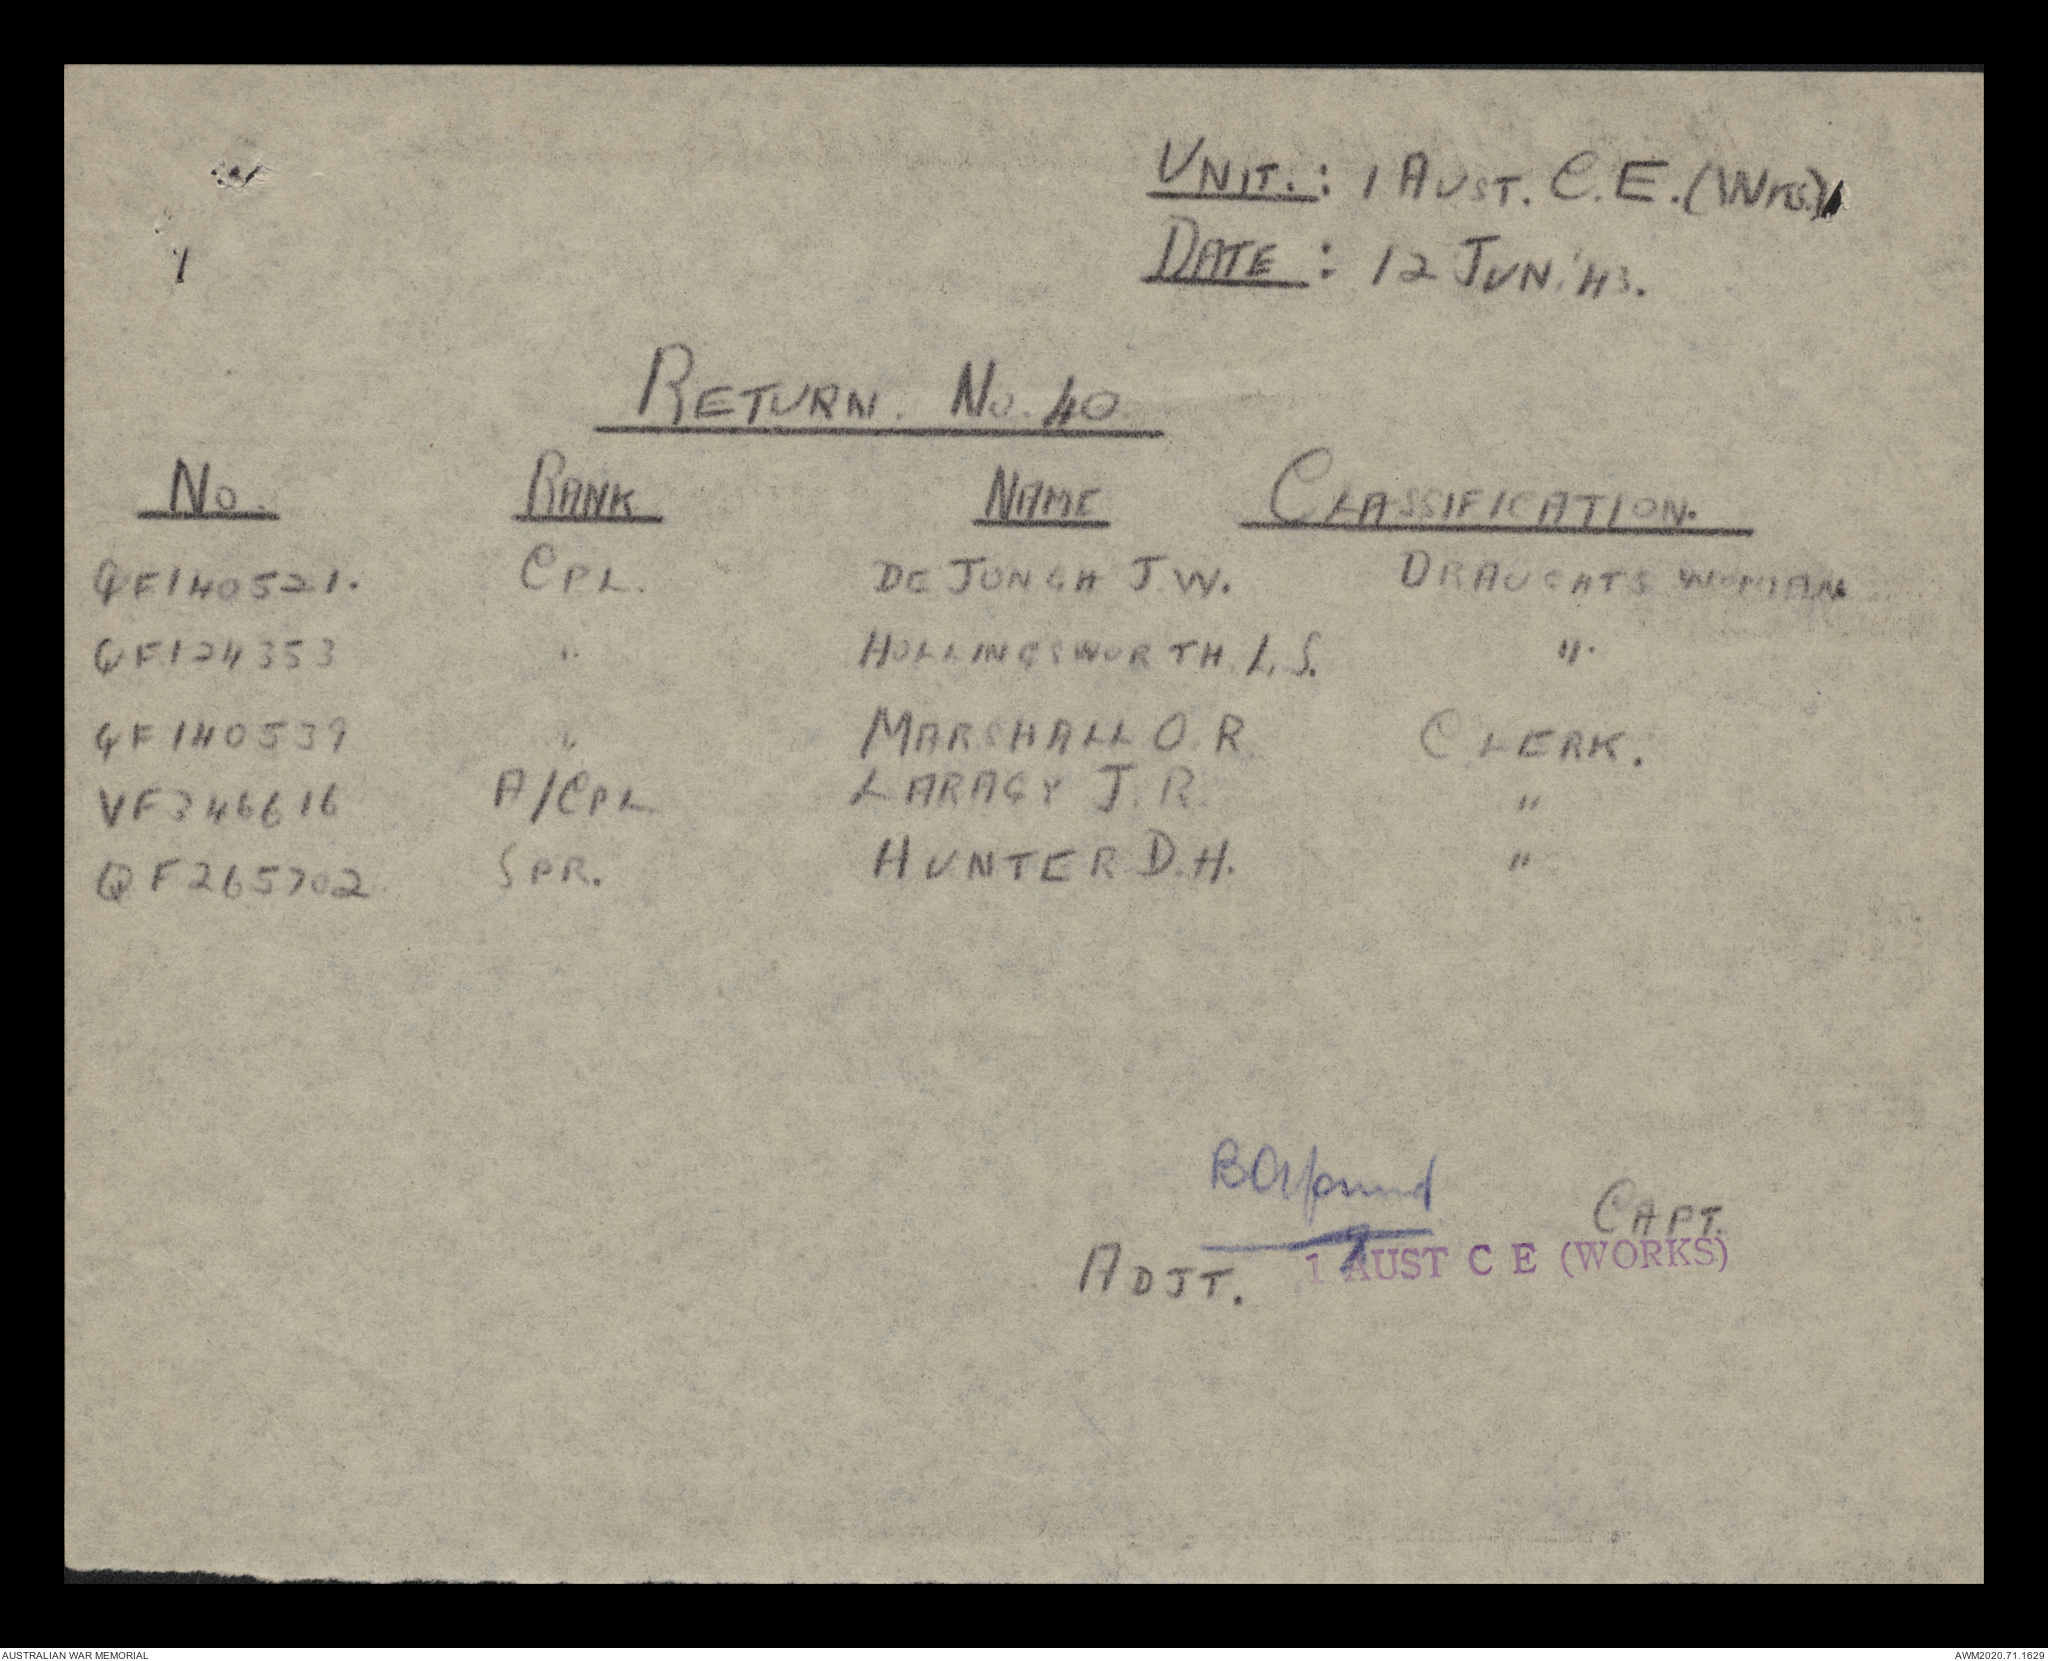 UNIT. : 1 AUST. C.E. (Wks)
DATE : 12 JUN. '43.
RETURN. No. 40
No. RANK NAME CLASSIFICATION.
QF140521. CPL. DE JONGH J.W. DRAUGHTS WOMAN
QF124353 " HOLLINGSWORTH. L. S. "
QF140539 " MARSHALL O. R. CLERK.
VF346616 A/CPL LARAGY J. R. "
QF265702 SPR. HUNTER D.H. "
CAPT.
ADJT. 1 AUST C E (WORKS)
AUSTRALIAN WAR MEMORIAL AWM2020.71.1629